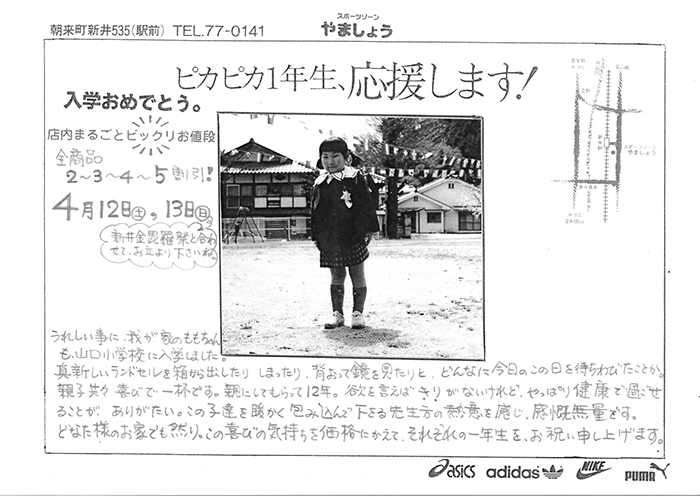 朝来町新井535(駅前) TEL.77-0141
スポーツゾーン
やましょう
ピカピカ1年生、応援します!
入学おめでとう。
店内まるごとビックリお値段
全商品
2~3~4~5割引!
4月12日㊏,13日㊐
新井金毘羅祭と合わ
せて、お立より下さいね。
スポーツゾーン
やましょう
うれしい事に、我が家のももちゃん
も、山口小学校に入学しました。
真新しいランドセルを箱から出したり しまったり、背おって鏡を見たりと、どんなに今日のこの日を待ちわびたことか。
親子共々喜びで一杯です。親にしてもらって12年。欲を言えばきりがないけれど、やっぱり健康で過ごせ
ることが ありがたい。この子達を暖かく包み込んで下さる先生方の熱意を感じ、感慨無量です。
どなた様のお家でも然り。この喜びの気持ちを価格にかえて、それぞれの一年生を、お祝い申し上げます。
asics adidas NIKE PUMA